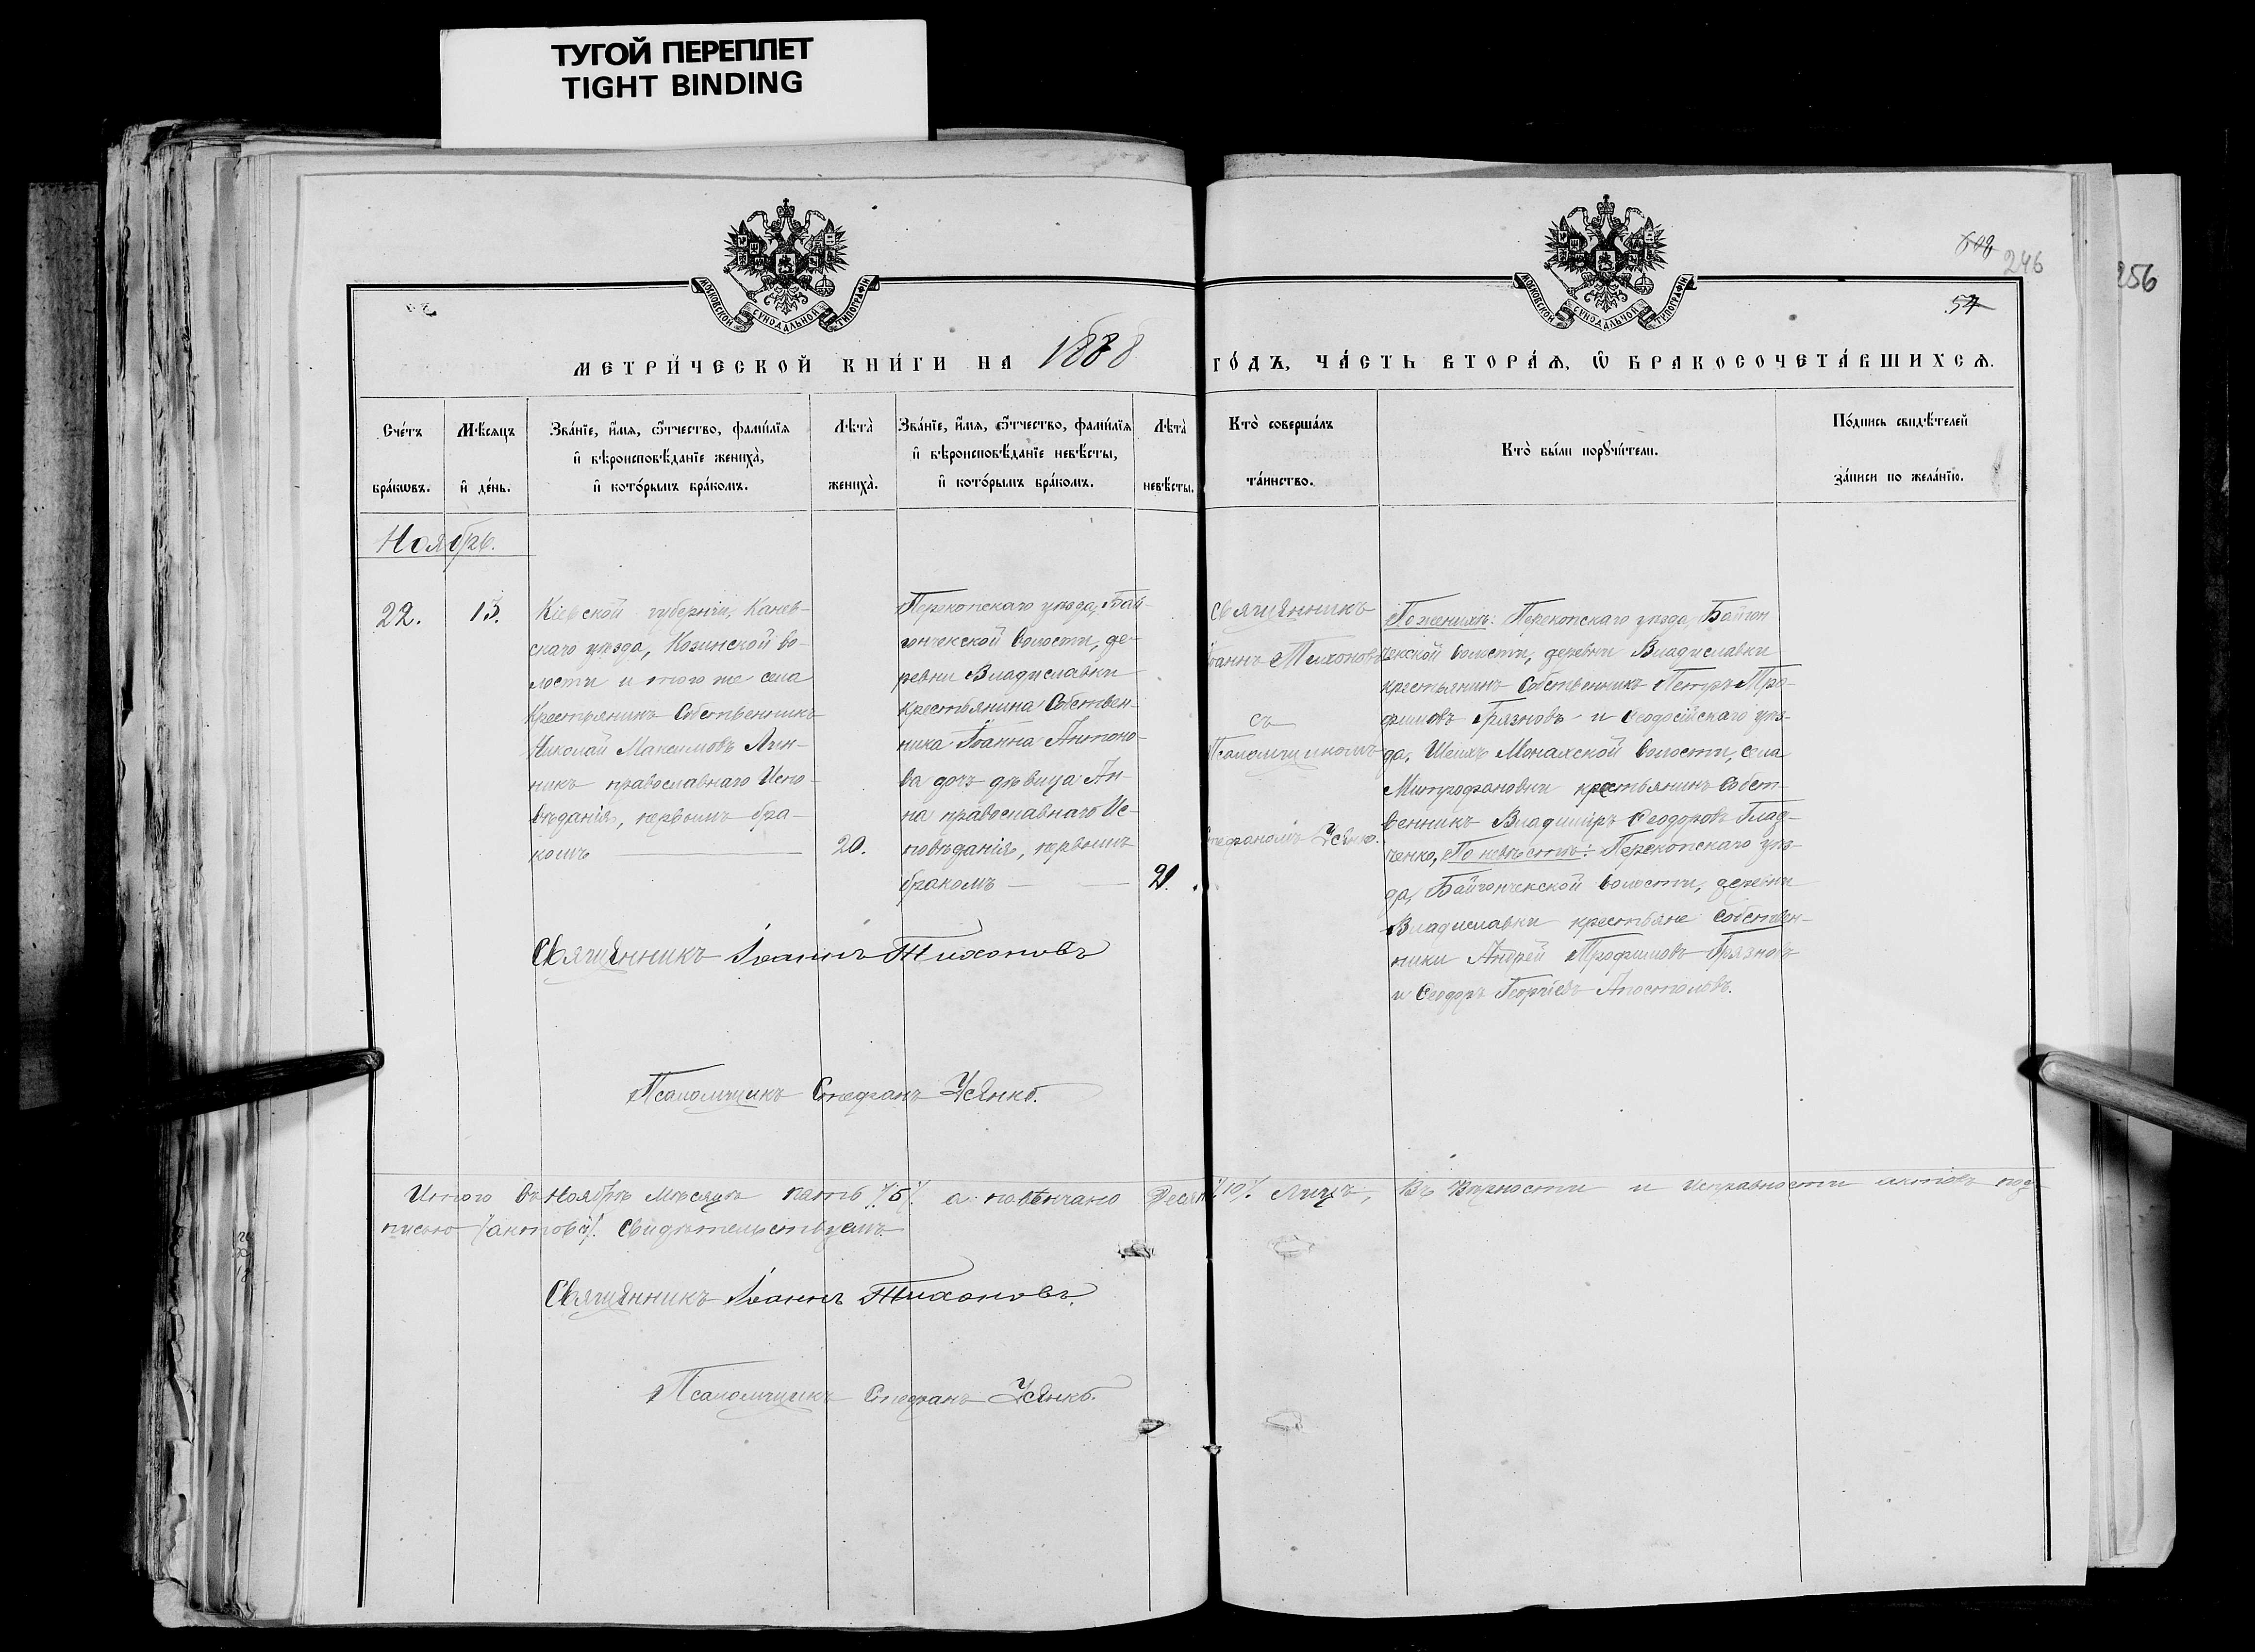 ТУГОЙ ПЕРЕПЛЕТ
TIGHT BINDING
МОСКОВСКОЙ СѴНОДАЛЬНОЙ ТИПОГРАФІИ
МОСКОВСКОЙ СѴНОДАЛЬНОЙ ТИПОГРАФІИ
246
256
54
МЕТРИ́ЧЕСКОЙ КНИ́ГИ НА 1888 ГО́ДЪ, ЧА́СТЬ ВТОРА́Ѧ, Ѿ БРАКОСОЧЕТА́ВШИХСѦ.
Сче́тъ бра́кѡвъ.
Мѣ́сяцъ и҆ де́нь.
Зва́нїе, и҆́мя, ѻ҆́тчество, фами́лїя и҆ вѣроисповѣ́данїе жениха̀, и҆ кото́рымъ бра́комъ.
Лѣта̀ жениха̀.
Зва́нїе, и҆́мя, ѻ҆́тчество, фами́лїя и҆ вѣроисповѣ́данїе невѣ́сты, и҆ кото́рымъ бра́комъ.
Лѣта̀ невѣ́сты.
Кто̀ соверша́лъ та́инство.
Кто̀ бы́ли порꙋчи́тели.
По́дпись свидѣ́телей за́писи по жела́нїю.
Ноябрь.
22.
13.
Кіевской губерніи, Канев-
скаго уѣзда, Козинской во-
лости и того же села
Крестьянинъ Собственникъ
Николай Максимовъ Лин-
никъ православнаго Испо-
вѣданія, первымъ бра-
комъ
20.
Перекопскаго уѣзда, Бай-
гончекской волости, де-
ревни Владиславки
крестьянина Собствен-
ника Іоанна Антоно-
ва дочь дѣвица Ан-
на православнаго Ис-
повѣданія, первымъ
бракомъ
21.
Священникъ
Іоаннъ Тихоновъ
съ
Псаломщикомъ
Стефаномъ Усенко.
По женихѣ: Перекопскаго уѣзда Байгон
чекской волости, деревни Владиславки
крестьянинъ Собственникъ Петръ Тро-
фимовъ Грязновъ и Ѳеодосійскаго уѣз-
да, Шейхъ Монахской волости, села
Митрофановки крестьянинъ Собст-
венникъ Владиміръ Ѳеодоровъ Глад-
ченко, По невѣстѣ: Перекопскаго уѣз-
да, Байгончекской волости, деревни
Владиславки крестьяне Собствен-
ники Андрей Трофимовъ Грязновъ
и Ѳеодоръ Георгіевъ Апостоловъ.
Священникъ Іоаннъ Тихоновъ
Псаломщикъ Стефанъ Усенко.
Итого въ Ноябрѣ мѣсяцѣ пять /5/. а повѣнчано десять /10/. лицъ, Въ вѣрности и исправности под-
писью /актовъ/. свидѣтельствуемъ.
Священникъ Іоаннъ Тихоновъ.
Псаломщикъ Стефанъ Усенко.